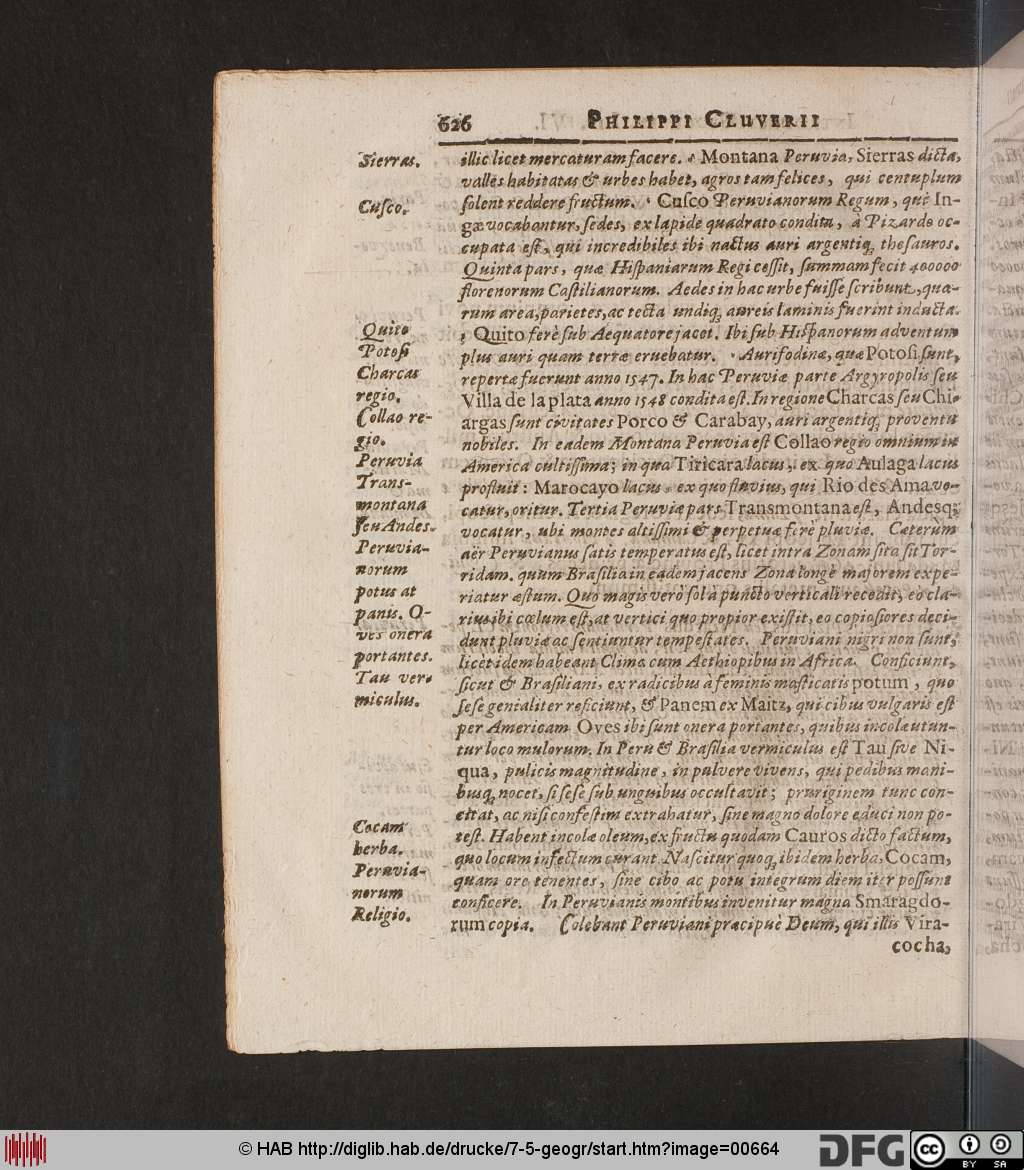 626 PHILIPPI CLUVERII
Sierras.
Cusco.
Quito
Potosi
Charcas
regio.
Collao re-
gio.
Peruvia
Trans-
montana
seu Andes.
Peruvia-
norum
potus at
panis. O-
ves onera
portantes.
Tau ver-
miculus.
Cocam
herba.
Peruvia-
norum
Religio.
illic licet mercaturam facere. Montana Peruvia, Sierras dicta,
valles habitatas & urbes habet, agros tam felices, qui centuplum
solent reddere fructum. Cusco Peruvianorum Regum, qui In-
gæ vocabantur, sedes, ex lapide quadrato condita, à Pizardo oc-
cupata est, qui incredibiles ibi nactus auri argentiq; thesauros.
Quinta pars, quæ Hispaniarum Regi cessit, summam fecit 400000
florenorum Castilianorum. Aedes in hac urbe fuisse scribunt, qua-
rum area, parietes, ac tecta undiq; aureis laminis fuerint inducta.
Quito ferè sub Aequatore jacet. Ibi sub Hispanorum adventum
plus auri quam terræ eruebatur. Aurifodinæ, quæ Potosi sunt,
repertæ fuerunt anno 1547. In hac Peruviæ parte Argyropolis seu
Villa de la plata anno 1548 condita est. In regione Charcas seu Chi-
argas sunt civitates Porco & Carabay, auri argentiq; proventu
nobiles. In eadem Montana Peruvia est Collao regio omnium in
America cultissima; in qua Tiricara lacus, ex quo Aulaga lacus
profluit: Marocayo lacus, ex quo fluvius, qui Rio des Ama vo-
catur, oritur. Tertia Peruviæ pars Transmontana est, Andesq;
vocatur, ubi montes altissimi & perpetuæ ferè pluviæ. Cæterùm
aër Peruvianus satis temperatus est, licet intra Zonam sita sit Tor-
ridam. quum Brasilia in eadem jacens Zona longè majorem expe-
riatur æstum. Quo magis verò sol à puncto verticali recedit, eo cla-
rius ibi cœlum est, at vertici quo propior existit, eo copiosiores deci-
dunt pluviæ ac sentiuntur tempestates. Peruviani nigri non sunt,
licèt idem habeant Clima cum Aethiopibus in Africa. Conficiunt,
sicut & Brasiliani, ex radicibus à feminis masticatis potum, quo
sese genialiter reficiunt, & Panem ex Maitz, qui cibus vulgaris est
per Americam Oves ibi sunt onera portantes, quibus incolæ utun-
tur loco mulorum. In Peru & Brasilia vermiculus est Tau sive Ni-
qua, pulicis magnitudine, in pulvere vivens, qui pedibus mani-
busq; nocet, si sese sub unguibus occultavit; pruriginem tunc con-
citat, ac nisi confestim extrahatur, sine magno dolore educi non po-
test. Habent incolæ oleum, ex fructu quodam Cauros dicto factum,
quo locum infectum curant. Nascitur quoq; ibidem herba, Cocam,
quam ore tenentes, sine cibo ac potu integrum diem iter possunt
conficere. In Peruvianis montibus invenitur magna Smaragdo-
rum copia. Colebant Peruviani præcipuè Deum, qui illis Vira-
cocha,
© HAB http://diglib.hab.de/drucke/7-5-geogr/start.htm?image=00664
DFG
cc BY SA